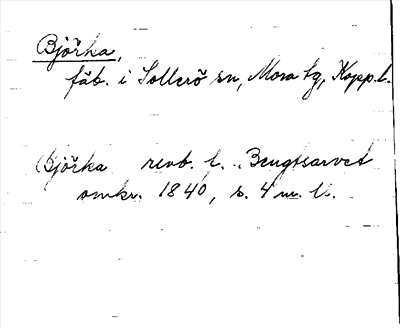 Björka,
fäb. i Sollerö sn, Mora tg, Kopp. l.
Björka renb. t. Bengtsarvet
omkr. 1840, s. 4 m. U.